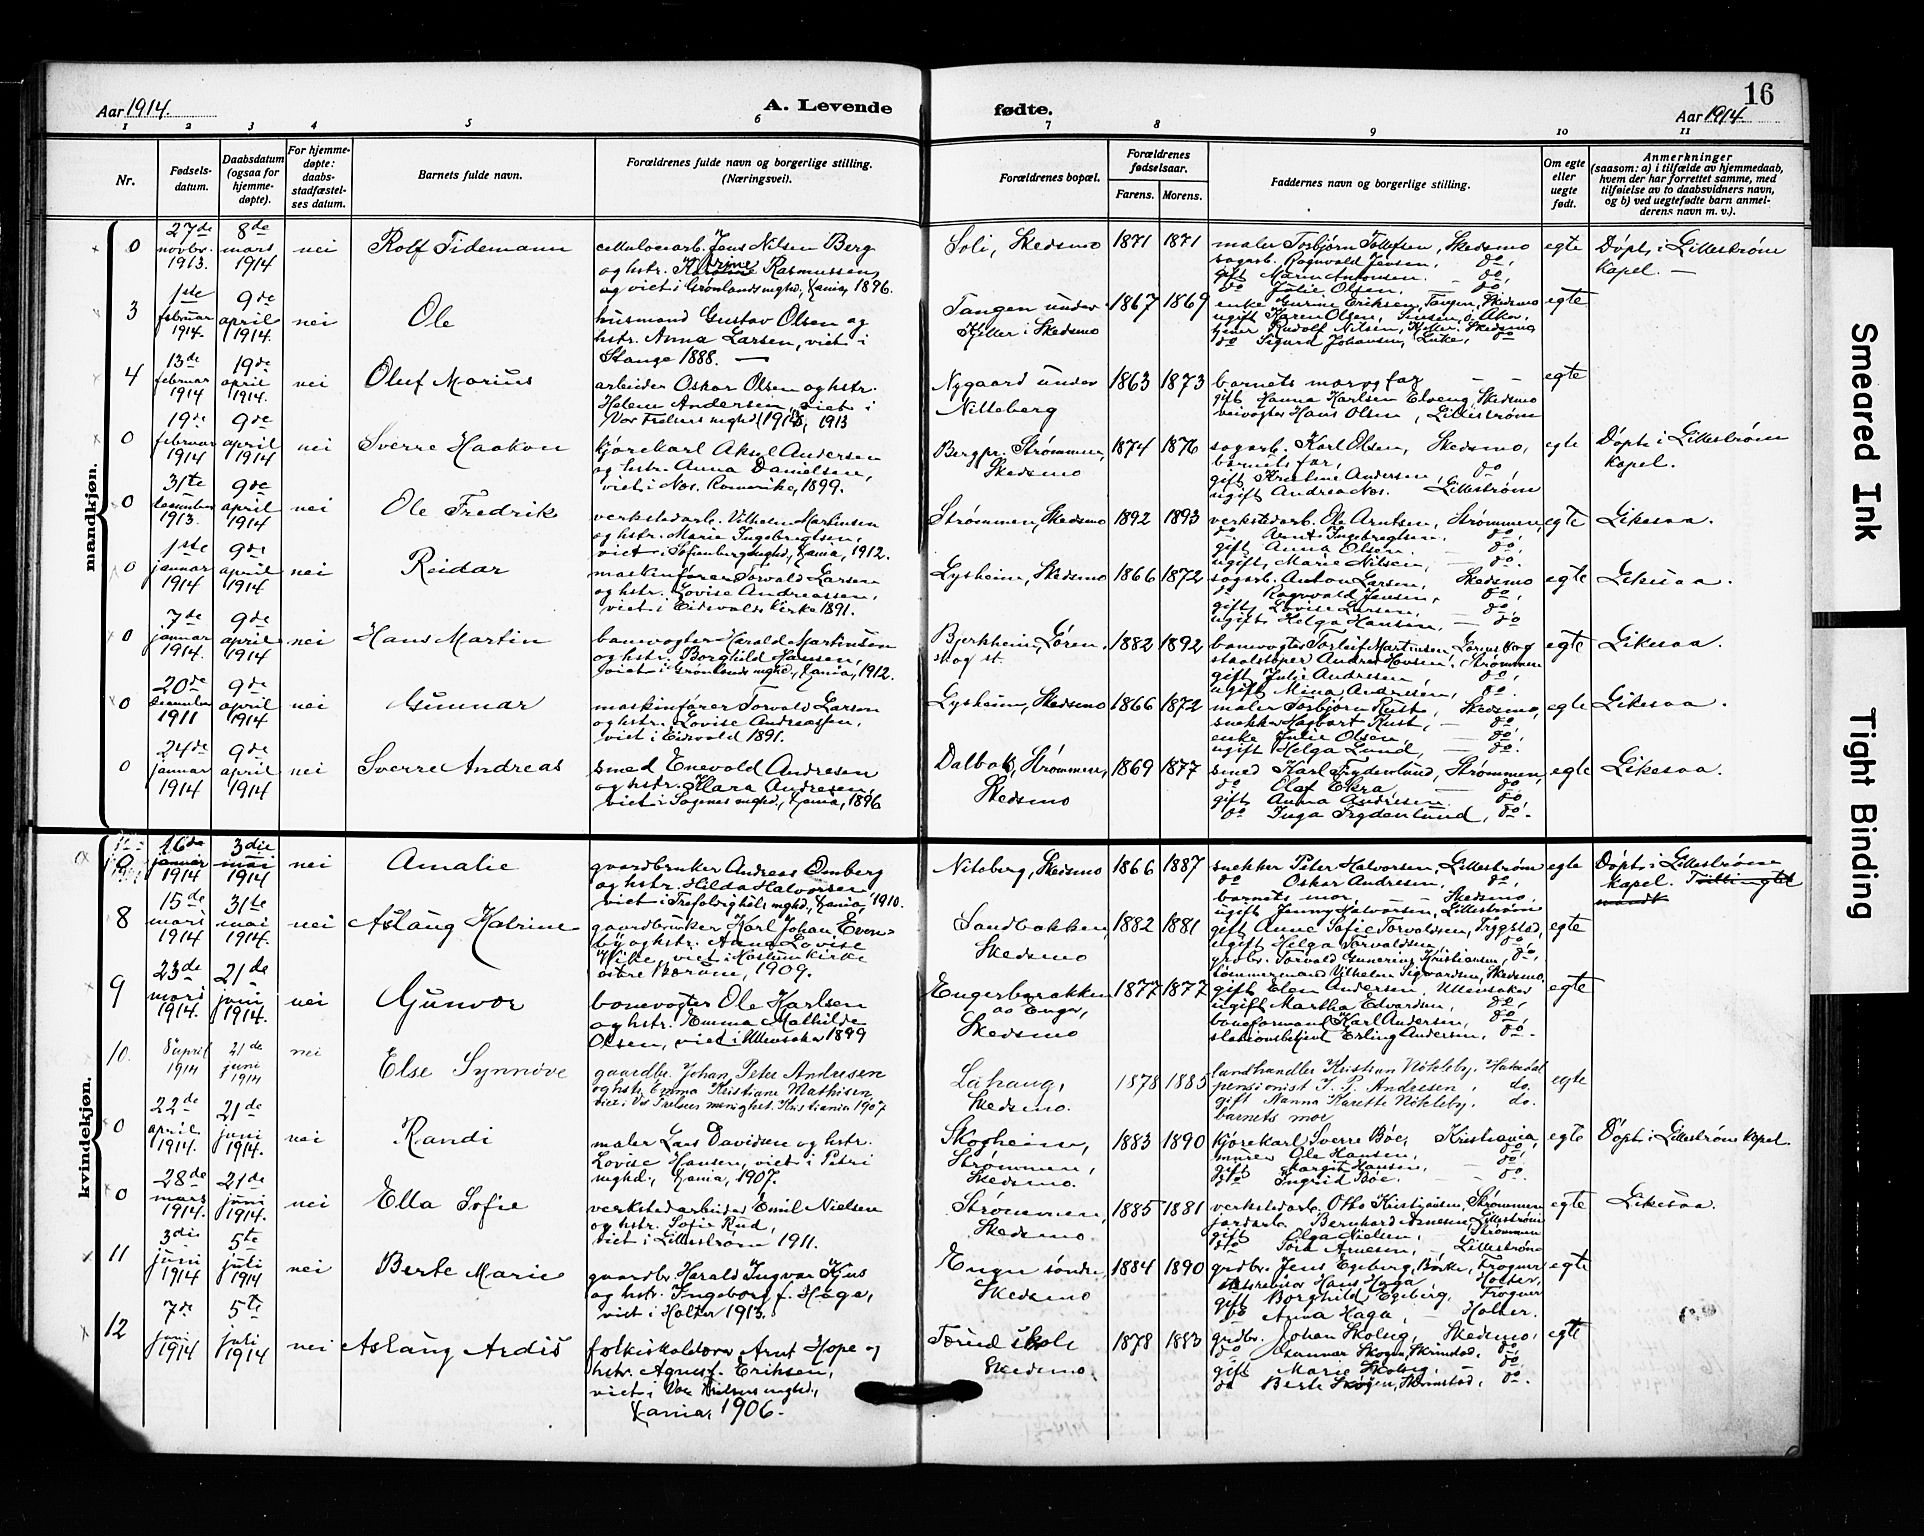 16
Aar 1914.
A. Levende
fødte.
Aar 1914.
1 2 3 4 5 6 7 8 9 10 11
Nr.
Fødsels-
datum.
Daabsdatum
(ogsaa for
hjemme-
døpte).
For hjemme-
døpte:
daabs-
stadfæstel-
ses datum.
Barnets fulde navn.
Forældrenes fulde navn og borgerlige stilling.
(Næringsvei).
Forældrenes bopæl.
Forældrenes
fødselsaar.
Farens. Morens.
Faddernes navn og borgerlige stilling.
Om egte
eller
uegte
født.
Anmerkninger
(saasom: a) i tilfælde av hjemmedaab,
hvem der har forrettet samme, med
tilføielse av to daabsvidners navn,
og b) ved uegtefødte barn anmel-
derens navn m. v.).
mandkjøn.
0
27de
novbr.
1913.
8de
mars
1914
nei
Rolf Tidemann
cellulosearb. Jens Nilsen Berg
og hstr. Rasmussen,
og viet i Grønlands mghd, Xania, 1896.
Soli, Skedsmo
1871 1871
maler Torbjørn Tollefsen, Skedsmo
sagarb. Ragnvald Jensen, do,
gift Marin Antonsen. do.
do Julie Olsen, do,
egte
Døpt i Lillestrøm
Kapel.
3
1ste
februar
1914.
9de
april
1914.
nei
Ole
husmand Gustav Olsen og
hstr. Anna Larsen, viet i
Stange 1888.
Tangen under
Kjeller i Skedsmo
1867 1869
enke Gurine Eriksen, Tangen, Skedsmo
ugift Karen Olsen,
tjener Rudolf Nilsen, Kjeller, Skedsmo
do Sigurd Johansen, do
egte
4
13de
februar
1914
19de
april
1914.
nei
Oluf Marius
arbeider Oskar Olsen og hstr.
Helene Andersen, viet i
Vor Frelsers mghd, 1913
Nygaard under
Nitteberg
1863 1873
barnets mor og far
gift Hanna Karlsen Elveng, Skedsmo
veivogter Hans Olsen, Lillestrøm
egte
0
19de
februar
1914
9de
april
1914
nei
Sverre Haakon
kjørekarl Aksel Andersen
og hstr. Anna Danielsen,
viet i Nes. Romerike, 1899.
Bergpr. Strømmen,
Skedsmo
1874 1876
sagarb. Karl Olsen, Skedsmo,
barnets far,
gift Kristine Andersen, do,
ugift Andrea Nes. Lillestrøm
egte
Døpt i Lillestrøm
Kapel.
0
31te
desember
1913.
9de
april
1914
nei
Ole Fredrik
verkstedarb. Vilhelm Martinsen
og hstr. Marie Ingebregtsen,
viet i Sofienberg mghd, Xania, 1912.
Strømmen, Skedsmo
1892 1893
verkstedarb. Ole Arntsen, Strømmen,
do Arnt Ingebregtsen. do,
gift Anna Olsen. do.
ugift Marie Nilsen, do.
egte
Likesaa.
0
1ste
januar
1914
9de
april
1914
nei
Reidar
maskinfører Torvald Larsen
og hstr. Lovise Andreassen,
viet i Eidsvolds kirke 1891.
Lysheim, Skedsmo
1866 1872
sagarb. Anton Larsen, Skedsmo
do Ragnvald Jensen, do,
gift Lovise Larsen, do,
ugift Helga Hansen, do
egte
Likesaa.
0
7de
januar
1914.
9de
april
1914
nei
Hans Martin
banevogter Harald Martinsen
og hstr. Borghild Hansen,
viet i Grønlands mghd, Xania, 1912.
Bjerkheim, Løren-
skog st.
1882 1892
banevogter Torleif Martinsen, Lørenskog
staalstøper Anders Hovsen, Strømmen
gift Julie Andresen, do,
ugift Mina Andresen, do.
egte
Likesaa.
0
20de
desember
1911
9de
april
1914
nei
Gunnar
maskinfører Torvald Larsen
og hstr. Lovise Andreassen,
viet i Eidsvold 1891.
Lysheim, Skedsmo
1866 1872
maler Torbjørn Rust, Skedsmo,
snekker Hagbart Rust, do,
enke Julie Olsen, do,
ugift Helga Lund, do.
egte
Likesaa.
0
24de
januar
1914
9de
april
1914
nei
Sverre Andreas
smed Enevold Andresen
og hstr. Klara Andresen,
viet i Sagenes mghd, Xania, 1896
Dalbak, Strømmen,
Skedsmo
1869 1877
smed Karl Frydenlund, Strømmen,
do Olaf Ekra, do,
gift Anna Andresen. do,
do Inga Frydenlund, do.
egte
Likesaa.
kvindekjøn.
0
16de
januar
1914
3die
mai
1914
nei
Amalie
gaardbruker Andreas Omberg
og hstr. Hilda Halvorsen
viet i Trefoldighets mghd, Xania, 1910.
Niteberg, Skedsmo
1866 1887
snekker Peter Halvorsen, Lillestrøm
do Oskar Andresen, do,
barnets mor, Skedsmo,
ugift Jenny Halvorsen, Lillestrøm
egte
Døpt i Lillestrøm
Kapel.
8
15de
mars
1914
31te
mai
1914.
nei
Aslaug Katrine
gaardbruker Karl Johan Even-
by og hstr. Anna Lovise
Wike, viet i Haslum kirke
østre Bærum, 1909.
Sandbakken,
Skedsmo
1882 1881
gift Anne Sofie Torvaldsen, Trygstad,
ugift Helga Torvaldsen, do,
grdbr. Torvald Gunerius Kristiansen, do,
tømmermand Vilhelm Sigvardsen, Skedsmo,
egte
9
23de
mars
1914.
21de
juni
1914.
nei
Gunvor
banevogter Ole Karlsen
og hstr. Emma Mathilde
Olsen, viet i Ullensaker 1899
Engerbarakken
av Enger,
Skedsmo
1877 1877
gift Elen Andersen, Ullensaker
ugift Martha Edvardsen, do,
baneformand Karl Andersen, do,
stationsbetjent Erling Andersen, do.
egte
10.
8de april
1914
21de
juni
1914
nei
Else Synnøve
gaardbr. Johan Peter Andresen
og hstr. Emma Kristiane Mathisen,
viet i Vor Frelsers menighet. Kristiania 1907
Lahaug,
Skedsmo.
1878 1885
landhandler Kristian Nökleby,
pensionist J. P. Andresen, do.
gift Nanna Karette Nökleby, do.
barnets mor
egte
0
22de
april
1914.
21de
juni
1914.
nei
Randi
maler Lars Davidsen og hstr.
Lovise Hansen, viet i Petri
mghd, Xania, 1907.
Skogheim,
Strømmen,
Skedsmo.
1883 1890
kjørekarl Sverre Bøe, Kristiania,
murer Ole Hansen, do,
gift Margit Hansen, do.
do Ingrid Bøe. do.
egte
Døpt i Lillestrøm kapel.
0
28de
mars
1914.
21de
juni
1914.
nei
Ella Sofie
verkstedarbeider Emil Nielsen
og hstr. Sofie Rud,
viet i Lillestrøm 1911.
Strømmen,
Skedsmo.
1885 1881
verkstedarb. Otto Kristiansen, Strømmen
jordarb. Bernhard Arnesen, Lillestrøm
gift Olga Nielsen, Strømmen
do Tora Arnesen, Lillestrøm
egte
Likesaa.
11
3die
juni
1914
5te
juli
1914
nei
Berte Marie
gaardbr. Harald Ingvar Kjus
og hstr. Ingeborg f. Haga,
viet i Holter 1913.
Enger søndre,
Skedsmo
1884 1890
grdbr. Jens Egeberg, Børke, Frogner
Hans Haga, Holter,
gift Borghild Egeberg, Frogner
do Anna Haga, Holter.
egte
12
7de
juni
1914
5te
juli
1914
nei
Aslaug Ardis
folkeskolelærer Arnt Hope og
hstr. Agnes f. Eriksen,
viet i Vor Frelsers mghd,
Xania, 1906.
Tærud skole
Skedsmo.
1878 1883
grdbr. Johan Skolseg, Skedsmo,
do Gunnar Skogen, Skrimstad, do,
gift Marie Skolseg, do,
do Berte Skøyen, Skrimstad, do.
egte
Smeared Ink
Tight Binding